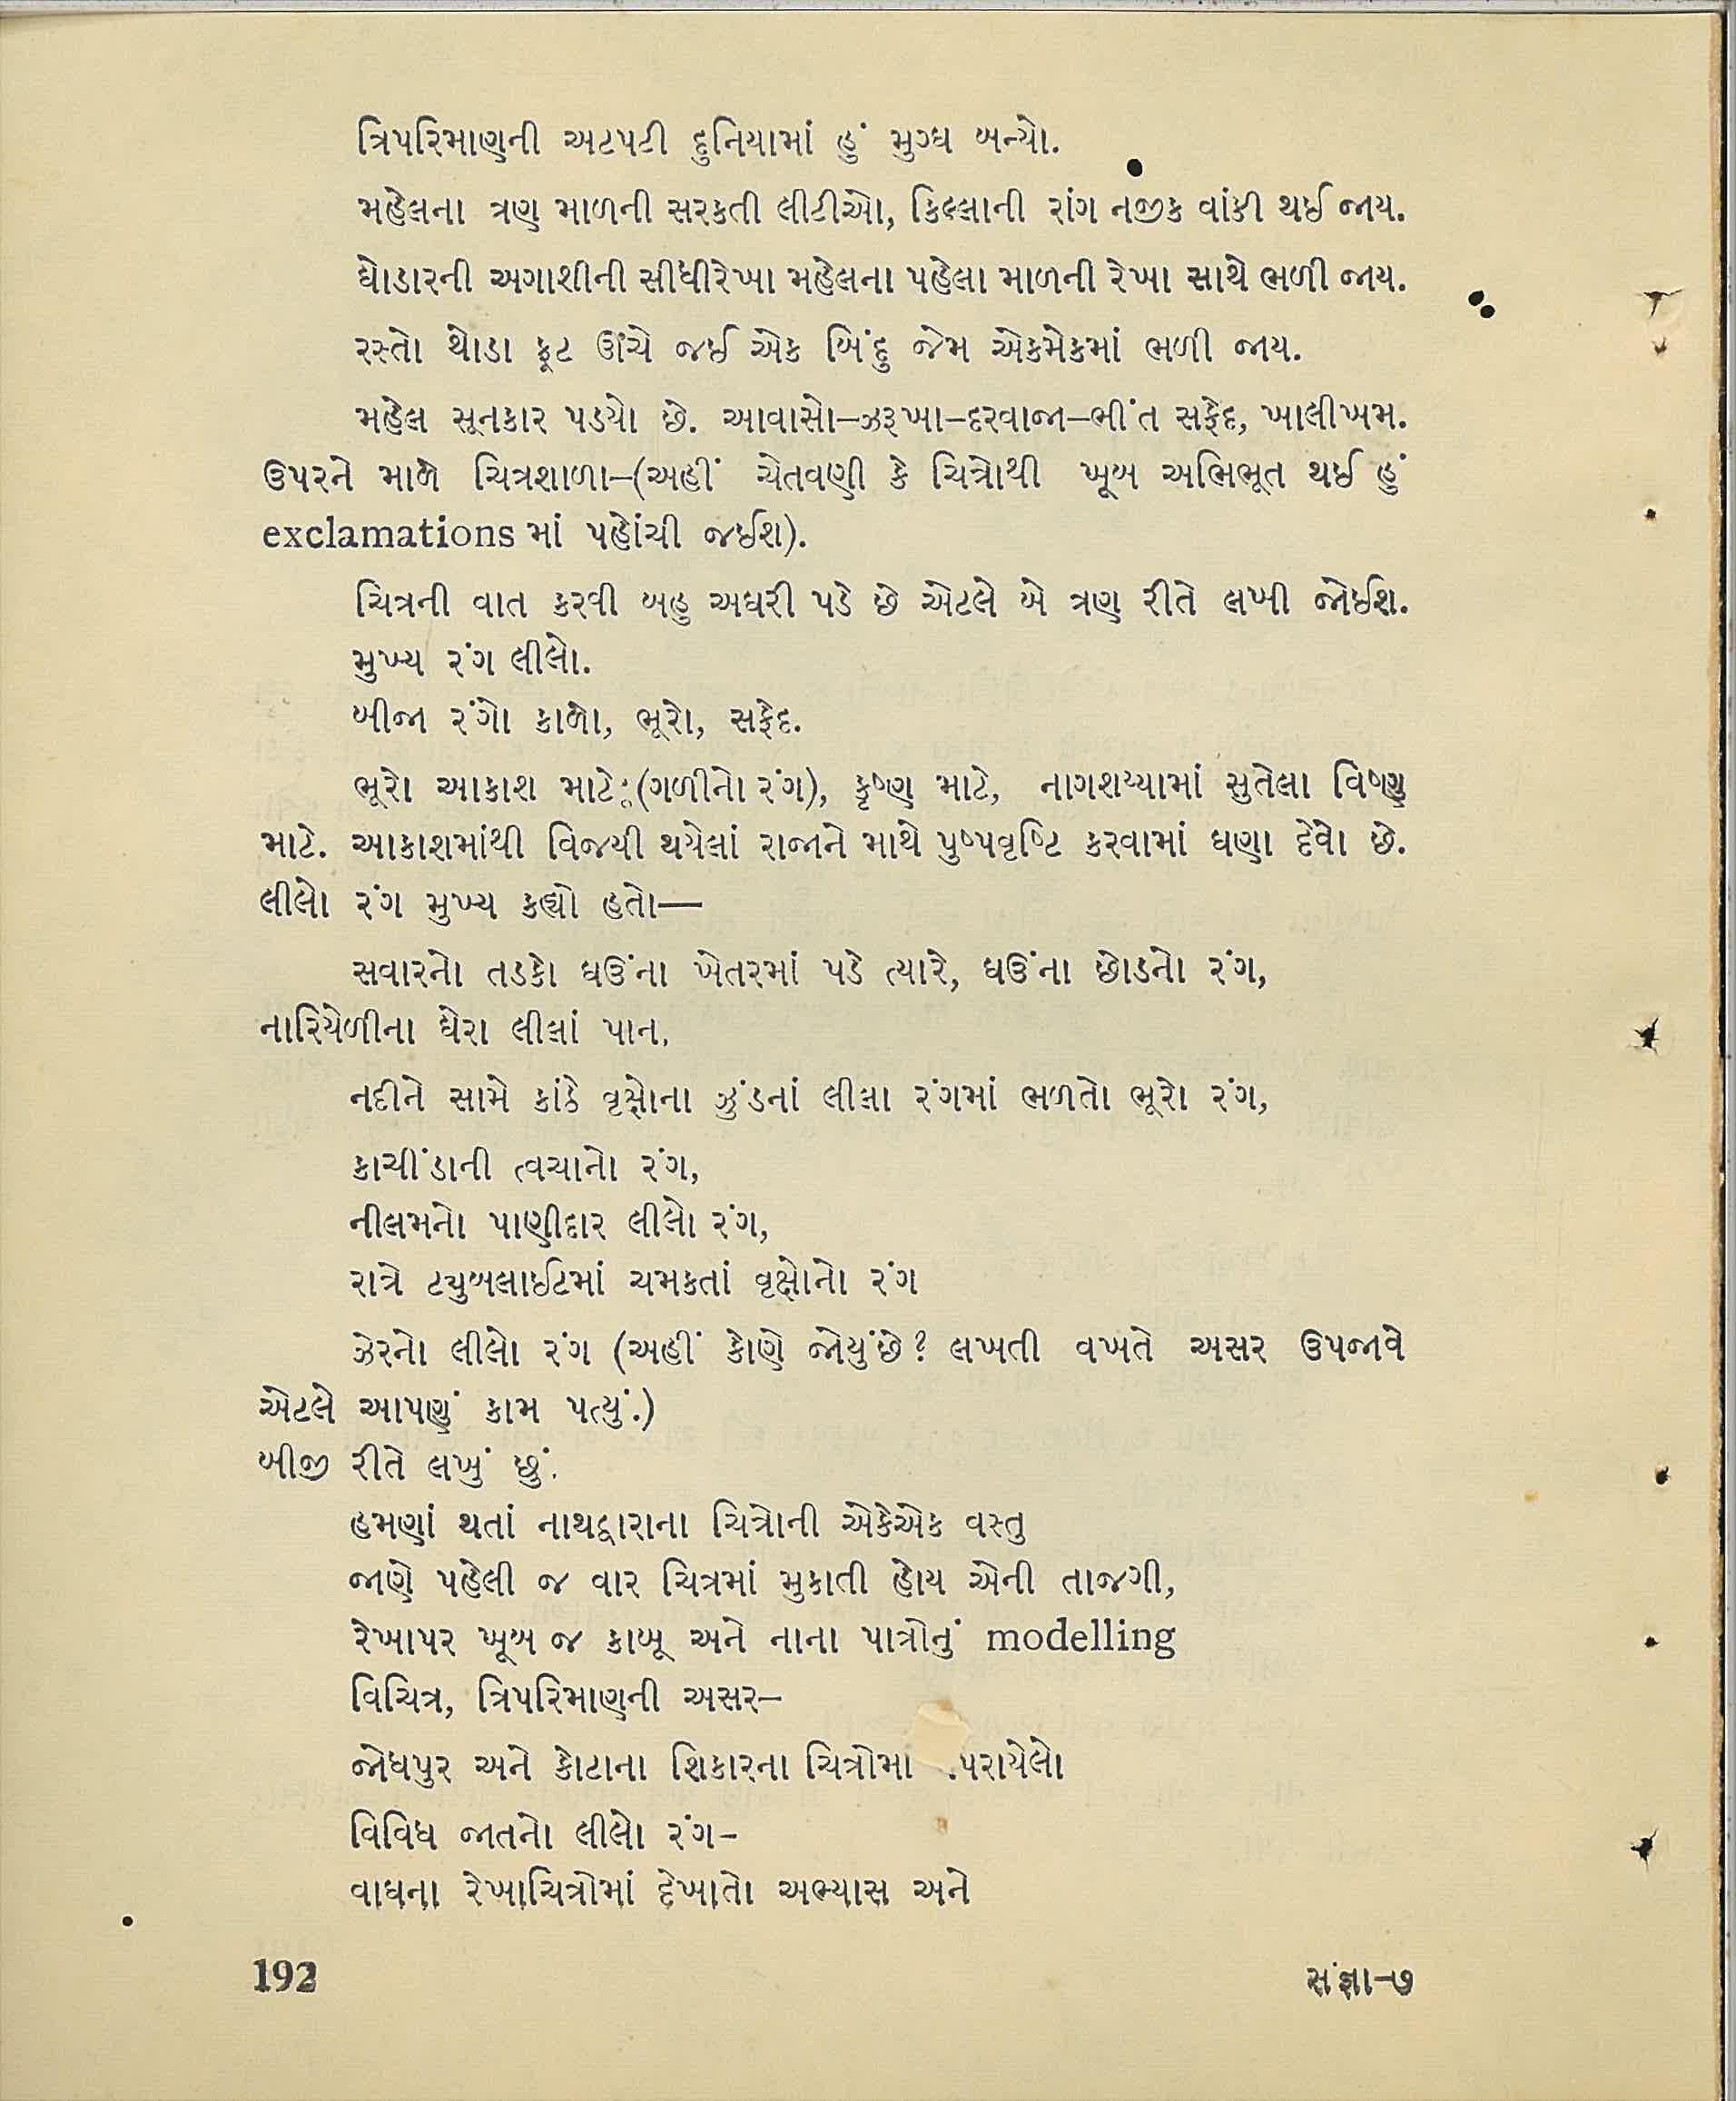 ત્રિપરિમાણની અટપટી દુનિયામાં હું મુગ્ધ બન્યો.
મહેલના ત્રણ માળની સરકતી લીટીઓ, કિલ્લાની રાંગ નજીક વાંકી થઈ જાય.
ઘોડારની અગાશીની સીધીરેખા મહેલના પહેલા માળની રેખા સાથે ભળી જાય.
રસ્તો થોડા ફૂટ ઊંચે જઈ એક બિંદુ જેમ એકમેકમાં ભળી જાય.
મહેલ સૂનકાર પડ્યો છે. આવાસો–ઝરૂખા–દરવાજા–ભીંત સફેદ, ખાલીખમ.
ઉપરને માળે ચિત્રશાળા–(અહીં ચેતવણી કે ચિત્રોથી ખૂબ અભિભૂત થઈ હું
exclamations માં પહોંચી જઈશ).
ચિત્રની વાત કરવી બહુ અઘરી પડે છે એટલે બે ત્રણ રીતે લખી જોઈશ.
મુખ્ય રંગ લીલો.
બીજા રંગો કાળો, ભૂરો, સફેદ.
ભૂરો આકાશ માટે:(ગળીનો રંગ), કૃષ્ણ માટે, નાગશય્યામાં સુતેલા વિષ્ણુ
માટે. આકાશમાંથી વિજયી થયેલાં રાજાને માથે પુષ્પવૃષ્ટિ કરવામાં ઘણા દેવો છે.
લીલો રંગ મુખ્ય કહ્યો હતો—
સવારનો તડકો ઘઉંના ખેતરમાં પડે ત્યારે, ઘઉંના છોડનો રંગ,
નારિયેળીના ઘેરા લીલાં પાન.
નદીને સામે કાંઠે વૃક્ષોના ઝુંડનાં લીલા રંગમાં ભળતો ભૂરો રંગ,
કાચીંડાની ત્વચાનો રંગ,
નીલમનો પાણીદાર લીલો રંગ,
રાત્રે ટ્યુબલાઈટમાં ચમકતાં વૃક્ષોનો રંગ
ઝેરનો લીલો રંગ (અહીં કોણે જોયુંછે? લખતી વખતે અસર ઉપજાવે
એટલે આપણું કામ પત્યું.)
બીજી રીતે લખું છું.
હમણાં થતાં નાથદ્વારાના ચિત્રોની એકેએક વસ્તુ
જાણે પહેલી જ વાર ચિત્રમાં મુકાતી હોય એની તાજગી,
રેખાપર ખૂબ જ કાબૂ અને નાના પાત્રોનું modelling
વિચિત્ર, ત્રિપરિમાણની અસર–
જોધપુર અને કોટાના શિકારના ચિત્રોમા પરાયેલો
વિવિધ જાતનો લીલો રંગ–
વાઘના રેખાચિત્રોમાં દેખાતો અભ્યાસ અને
192
સંજ્ઞા–૭